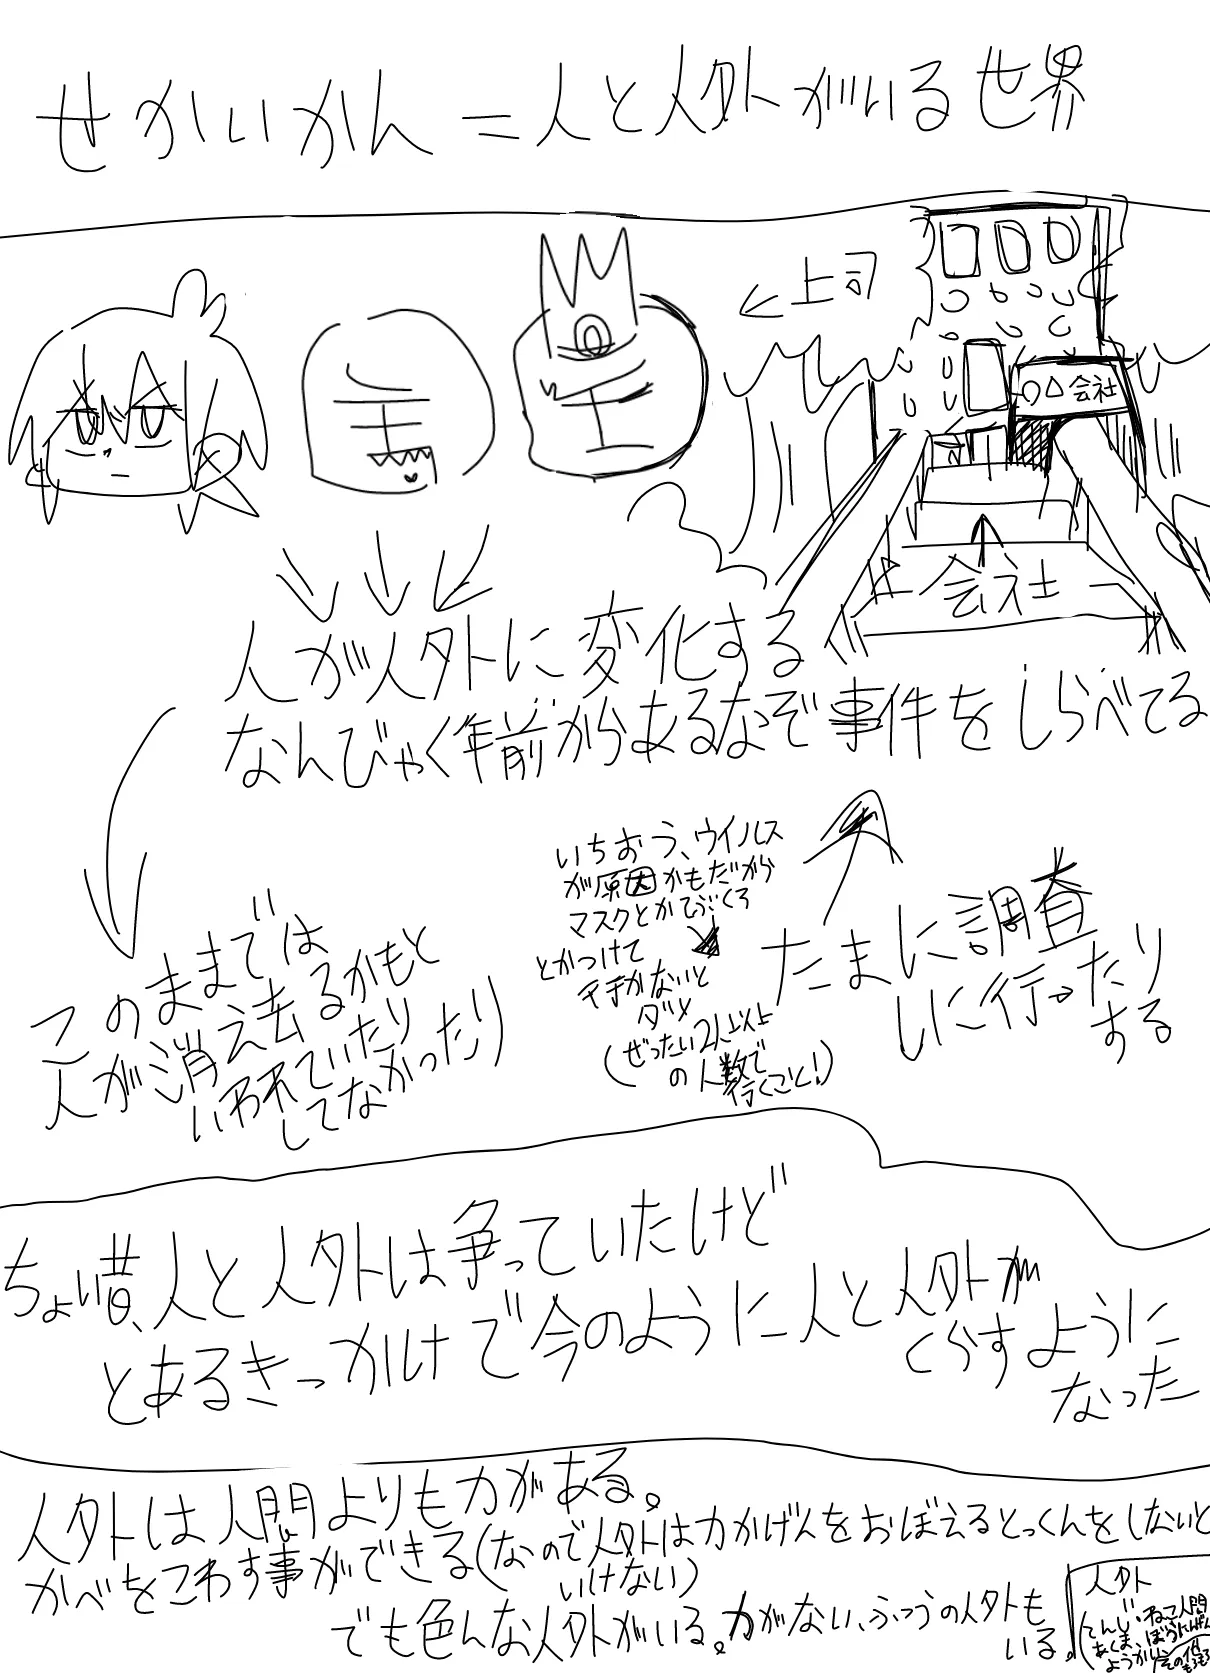 せかいかん=人と人外がいる世界
←上司
○△会社
↑
会社
人が人外に変化する
なんびゃく年前からあるなぞ事件をしらべてる
いちおう、ウイルス
が原因かもだから
マスクとかてぶくろ
とかつけて
行かないと
ダメ
(ぜったい2人以上
の人数で
行くこと!)
たまに調査
しに行ったり
する
このままでは
人が消え去るかもと
いわれていたり
してなかったり
ちょい昔、人と人外は争っていたけど
とあるきっかけで今のように人と人外が
くらすように
なった
人外は人間よりも力がある。
かべをこわす事ができる(なので人外は力かげんをおぼえるとっくんをしないと
いけない)
でも色んな人外がいる。力がない、ふつうの人外も
いる。
人外
てんし、ねこ人間
あくま、
ようかい その他もろもろ